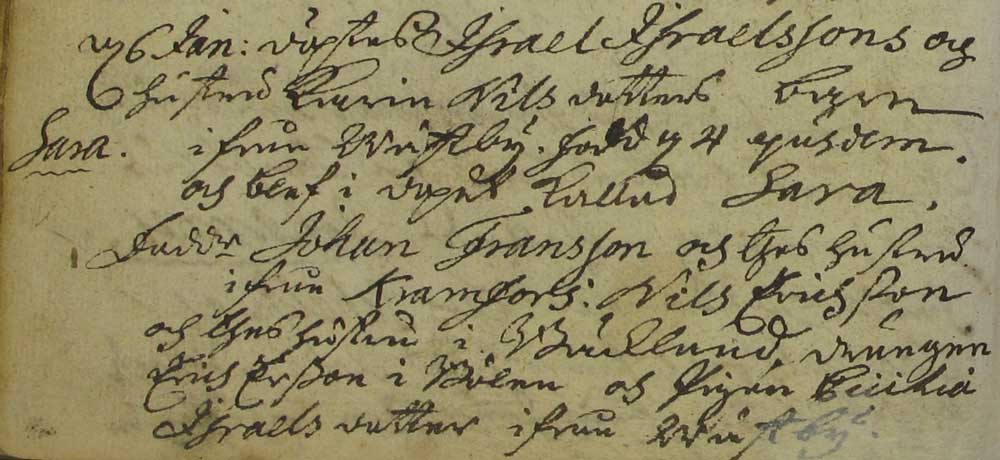 d 6 Jan: döptes Israel Israelssons och
hustrus Karin Nils dotters barn
Sara. ifrån Wästby. född d 4 ejusdem.
och blef i dopet kallad Sara.
Faddr Johan Fransson och thes hustru
ifrån Kramfors: Nils Erichsson
och thes hustru i Bäcklund, drängen
Erich Ersson i Bölen och Pigan
Israels dotter ifrån Wästby.